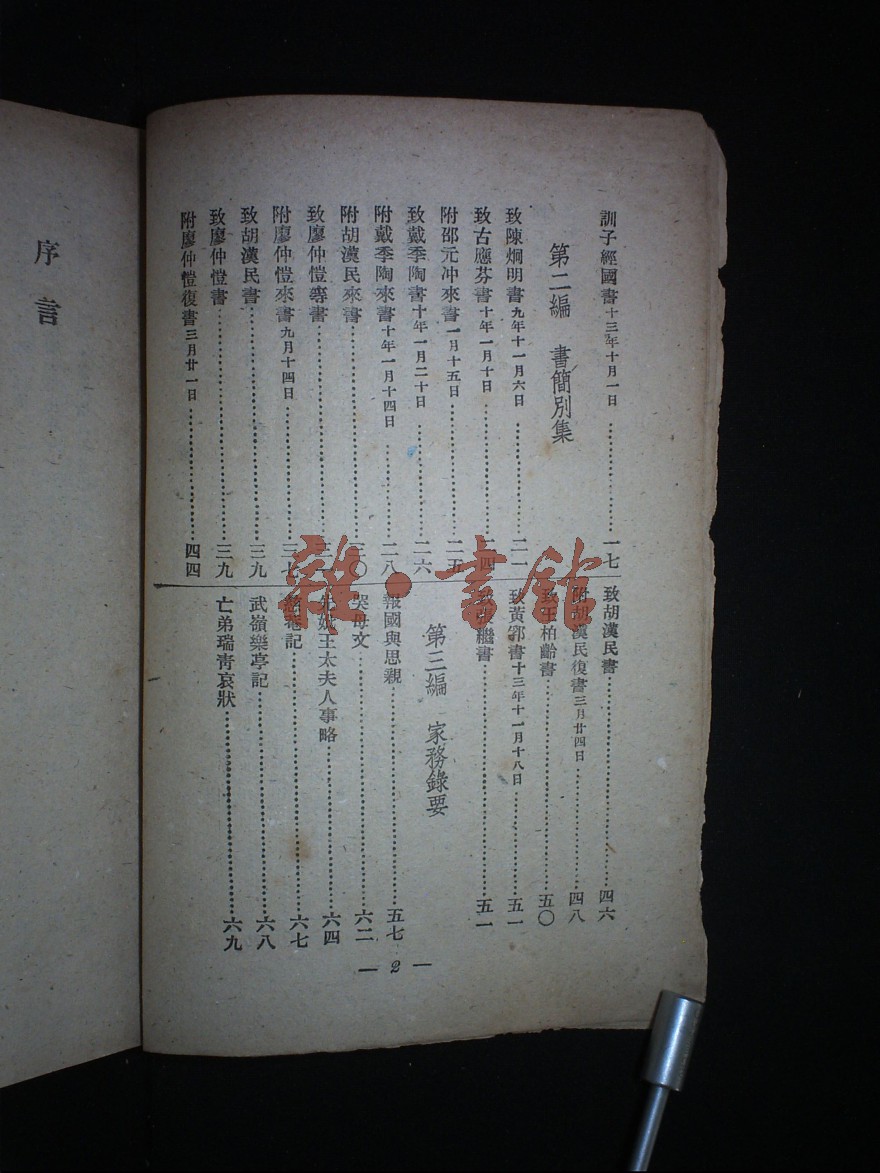 訓子經國書十三年十月一日……一七
第二編 書簡別集
致陳炯明書九年十一月六日……二一
致古應芬書十年一月十日……二四
附邵元冲來書一月十五日……二五
致戴季陶書十年一月二十日……二六
附戴季陶來書十年一月十四日……二八
附胡漢民來書……三〇
致廖仲愷等書……三一
附廖仲愷來書九月十四日……三七
致胡漢民書……三九
致廖仲愷書……三九
附廖仲愷復書三月廿一日……四四
致胡漢民書……四六
附胡漢民復書三月廿四日……四八
致王柏齡書……五〇
致黃郛書十三年十一月十八日……五一
致張繼書……五一
第三編 家務錄要
報國與思親……五七
哭母文……六二
先妣王太夫人事略……六四
慈菴記……六七
武嶺樂亭記……六八
亡弟瑞靑哀狀……六九
— 2 —
序言
雜·書館